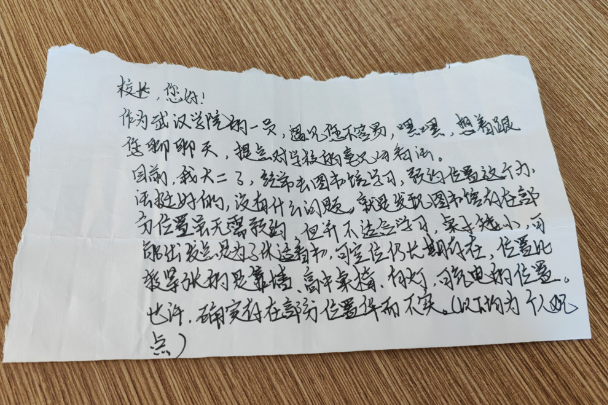 校长，您好！
作为武汉学院的一员，遇见您不容易，嘿嘿，想着跟
您聊聊天，提点对学校的事的看法。
目前，我大二了，经常去图书馆学习，预约位置这个办
法挺好的，没有什么问题。就是发现图书馆存在部
分位置虽无需预约，但并不适合学习，桌子越小，可
能出发点是为了休适看书，可定位仍长期存在，位置比
较紧张的是靠墙、高中桌椅、有灯、可充电的位置。
也许，确实存在部分位置华而不实。（以上均为个人观
点）